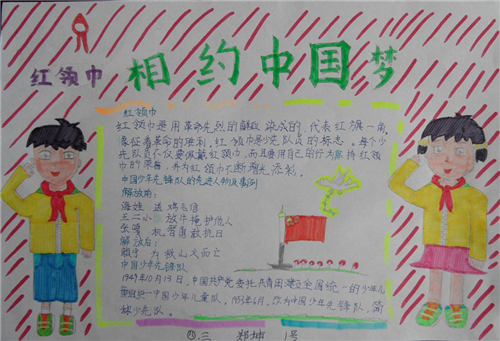 红领巾 相约中国梦
红领巾
红领巾是用革命先烈的鲜血染成的,代表红旗一角,
象征着革命的胜利,红领巾是少先队员的标志。每个少
先队员不仅要佩戴红领巾,而且要用自己的行为维持红领
巾的荣誉,并为红领巾不断增光添彩。
中国少年先锋队的先进人物及事例
解放前:
海娃 送鸡毛信
王二小 放牛掩护他人
张嘎 机智勇敢抗日
解放后:
赖宁 为救山火而亡
中国少年先锋队
1949年10月13日,中国共产党委托共青团建立全国统一的少年儿
童组织—中国少年儿童队,1953年6月,改为中国少年先锋队,简
称少先队。
四.三 郑坤 1号